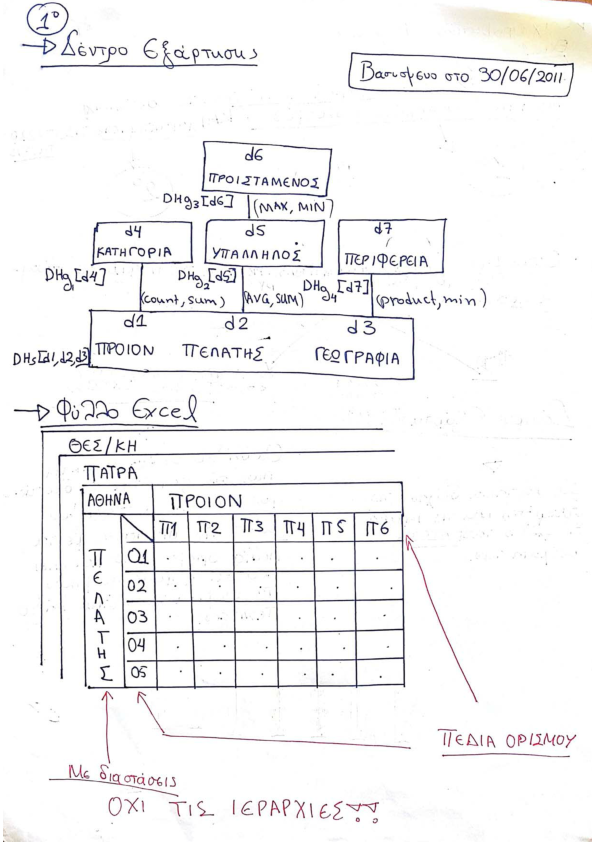 1º
→ Δέντρο Εξάρτησης
Βασισμενο στο 30/06/2011
d6
ΠΡΟΙΣΤΑΜΕΝΟΣ
DHg3[d6] (MAX, MIN)
d4 d5 d7
ΚΑΤΗΓΟΡΙΑ ΥΠΑΛΛΗΛΟΣ ΠΕΡΙΦΕΡΕΙΑ
DHg1[d4] DHg2[d5] DHg4[d7]
(count, sum) (AVG, SUM) (product, min)
d1 d2 d3
DHs[d1,d2,d3] ΠΡΟΙΟΝ ΠΕΛΑΤΗΣ ΓΕΩΓΡΑΦΙΑ
→ Φύλλο Excel
ΘΕΣ/ΚΗ
ΠΑΤΡΑ
ΑΘΗΝΑ ΠΡΟΙΟΝ
Π1 Π2 Π3 Π4 Π5 Π6
ΠΕΛΑΤΗΣ
01
02
03
04
05
ΠΕΔΙΑ ΟΡΙΣΜΟΥ
Με διαστάσεις
ΟΧΙ ΤΙΣ ΙΕΡΑΡΧΙΕΣ!!